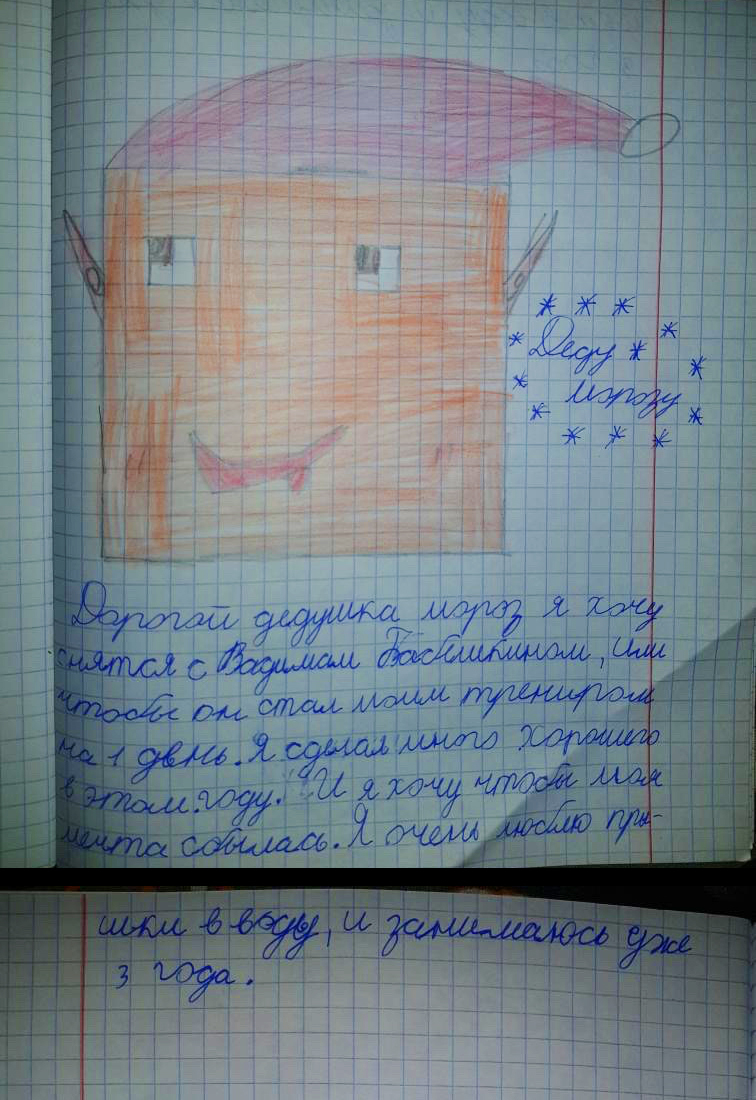 Деду
морозу
Дорогой дедушка мороз я хочу
снятся с Вадимам Бабышкином, или
чтобы он стал моим трениром
на 1 день. Я сделал много хорошего
в этом году. И я хочу чтобы моя
мечта сбылась. Я очень люблю пры-
шки в воду, и занимаюсь уже
3 года.